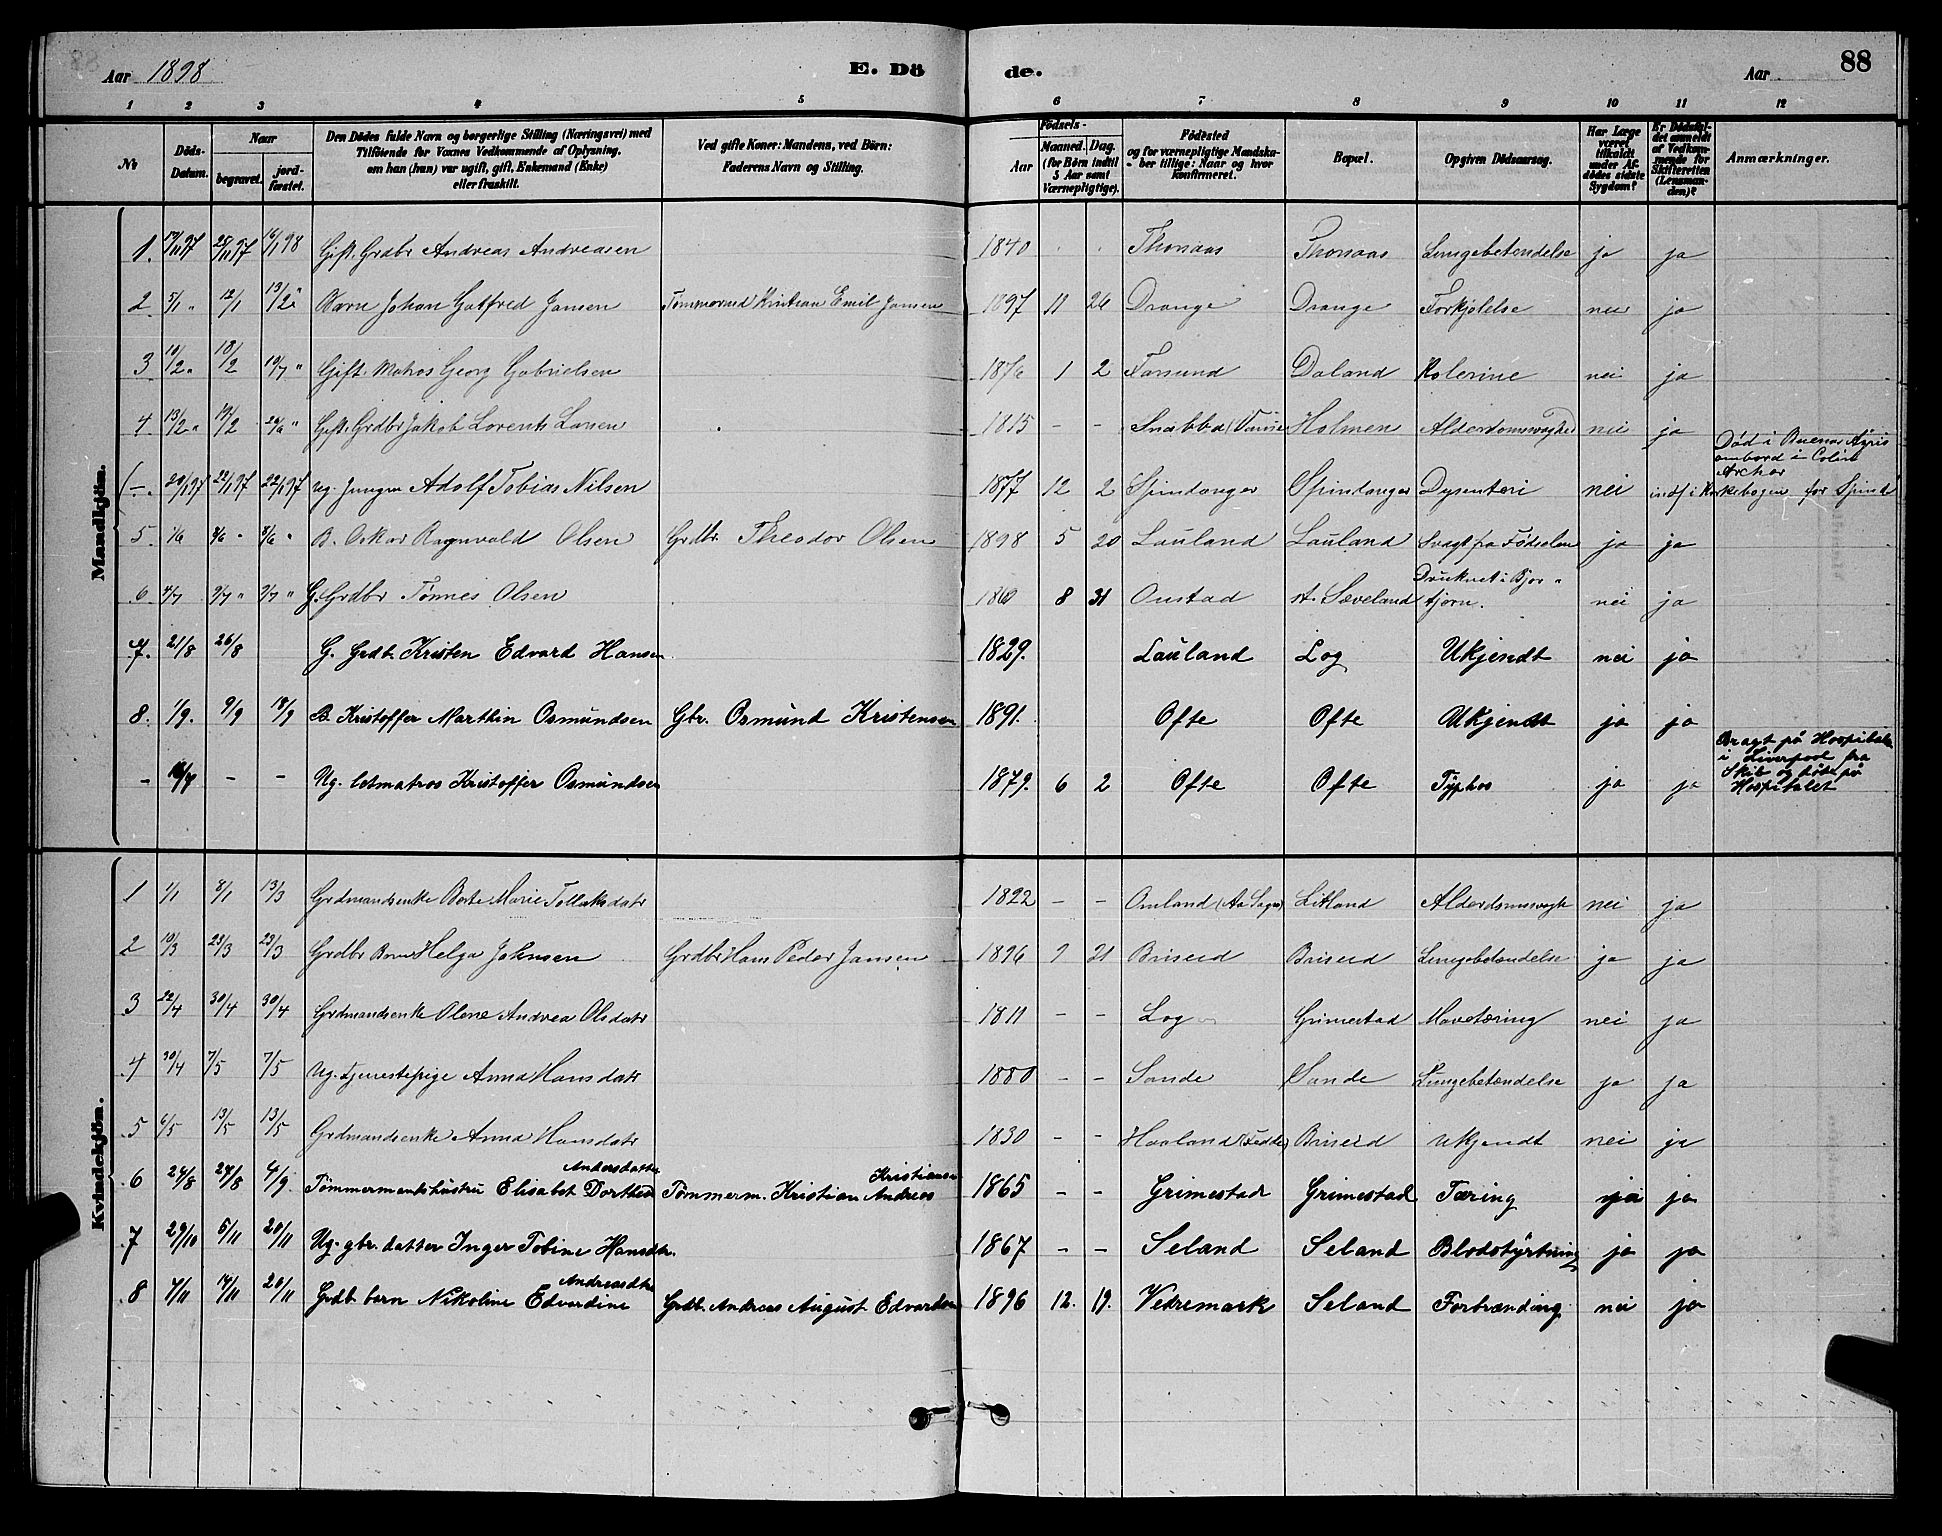 Aar 1898
E. Dö
de.
Aar
88
1 2 3 4 5 6 7 8 9 10 11 12
No
Döds-Datum.
Naar
begravet.
jordfæstet.
Den Dödes fulde Navn og borgerlige Stilling (Næringsvei) med
Tilföiende for Voxnes Vedkommende af Oplysning,
om han (hun) var ugift, gift, Enkemand (Enke)
eller fraskilt.
Ved gifte Koner: Mandens, ved Börn:
Faderens Navn og Stilling.
Födsels-
Aar
Maaned. Dag.
(for Börn indtil
5 Aar samt
Værnepligtige).
Födested
og for værnepligtige Mandskaber tillige: Naar og hvor
konfirmeret.
Bopæl.
Opgiven Dödsaarsag.
Har Læge
været
tilkaldt
under Afdödes sidste
Sygdom?
Er Dödsfaldet anmeldt
af Vedkommende for
Skifteretten
(Lensmanden)?
Anmærkninger.
Mandkjön.
1. 25/11 97 16/1 98 Gift. Grdbr Andreas Andreasen 1840 Thonaas Thonaas Lungebetendelse ja ja
2 5/1 " 12/1 13/2 " Barn Johan Gotfred Jansen Tømmermd Kristian Emil Jansen 1897 11 26 Drange Drange Forkjølelse nei ja
3 10/2 " 18/2 10/7 " Gift. Matros Georg Gabrielsen 1876 1 2 Farsund Daland Kolerine nei ja
4 13/2 " 19/2 " Gift. Grdbr Jakob Lorents Larsen 1815 - - (Vanse Holmen nei ja
Død i Buenos Ayris
ombord i
Archer
-. 20/1 97 22/1 97 22/1 97 Ug. Jungm Adolf Tobias Nilsen 1877 12 2 Spindanger Spindanger Dysenteri nei indf i Kirkebogen for Spind
5 1/6 " " B. Oskar Ragnvald Olsen Grdbr. Theodor Olsen 1898 5 20 Lauland Lauland Svagt fra Fødselen ja ja
6 4/7 9/7 " 9/7 " G. Grdbr Tønnes Olsen 8 31 Onstad st. Sæveland Druknet i Bjor-
tjørn. nei ja
7. 21/8 26/8 G. Grdb. Kristen Edvard Hansen 1829. Lauland Log Ukjendt nei ja
8. 1/9. 9/9 18/9 B. Kristoffer Marthin Osmundsen Gbr. Osmund Kristensen 1891. Ofte Ofte Ukjendt ja ja
Bragt på Hospitalet
i Liverpool fra
Skib og døde på
Hospitalet
- - - Ug. letmatros Kristoffer Osmundsen 1879. 6 2 Ofte Ofte Typhos ja ja
Kvindekjön.
1 1/1 8/1 13/3 Grdmandsenke Berte Marie Tollaksdatr 1822 - - Omland Litland Alderdomssvagh nei ja
2 10/3 23/3 23/3 Grdbr Barn Helga Johnsen Grdbr Hans Peder Jansen 1896 9 21 Briseid Briseid Lungebetændelse ja ja
3 22/4 30/4 30/4 Grdmandsenke Olene Andrea Olsdatr 1811 - - Log Grimestad Mavetæring nei ja
4 30/4 7/5 7/5 Ug. Tjenestepige Anna Hansdatr 1880 - - Sande Sande Lungebetændelse ja ja
5 6/5 13/5 13/5 Grdmandsenke Anna Hansdatr 1830 - - Haaland (Fedde) Briseid Ukjendt nei ja
Andersdatter
Kristiansen
6 24/8 27/8 4/9. Tømmermandshustru Elisabet Dorthea Tømmerm. Kristian Andreas 1865 - - Grimestad Grimestad Tæring ja ja
7 29/10 5/11 20/11 Ug. gbr. datter Inger Tobine Hansdtr. 1867 - - Seland Seland Blodstyrtning ja ja
Andreasdtr
8 7/11 14/11 20/11 Grdb. barn Nikoline Edvardine Grdb. Andreas August Edvardsen 1896 12. 19. Vedremark Seland Forbrænding nei ja